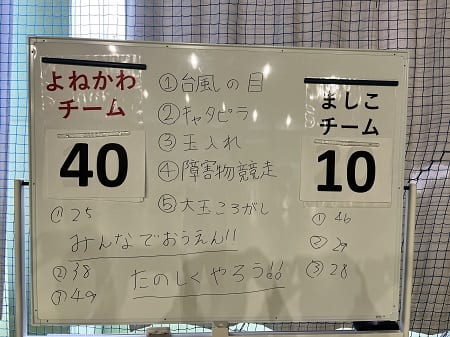 よねかわ
チーム
40
①台風の目
②キャタピラ
③玉入れ
④障害物競走
⑤大玉ころがし
ましこ
チーム
10
① 25
みんなでおうえん!!
② 38
③ 49
たのしくやろう!!
① 46
② 29
③ 28